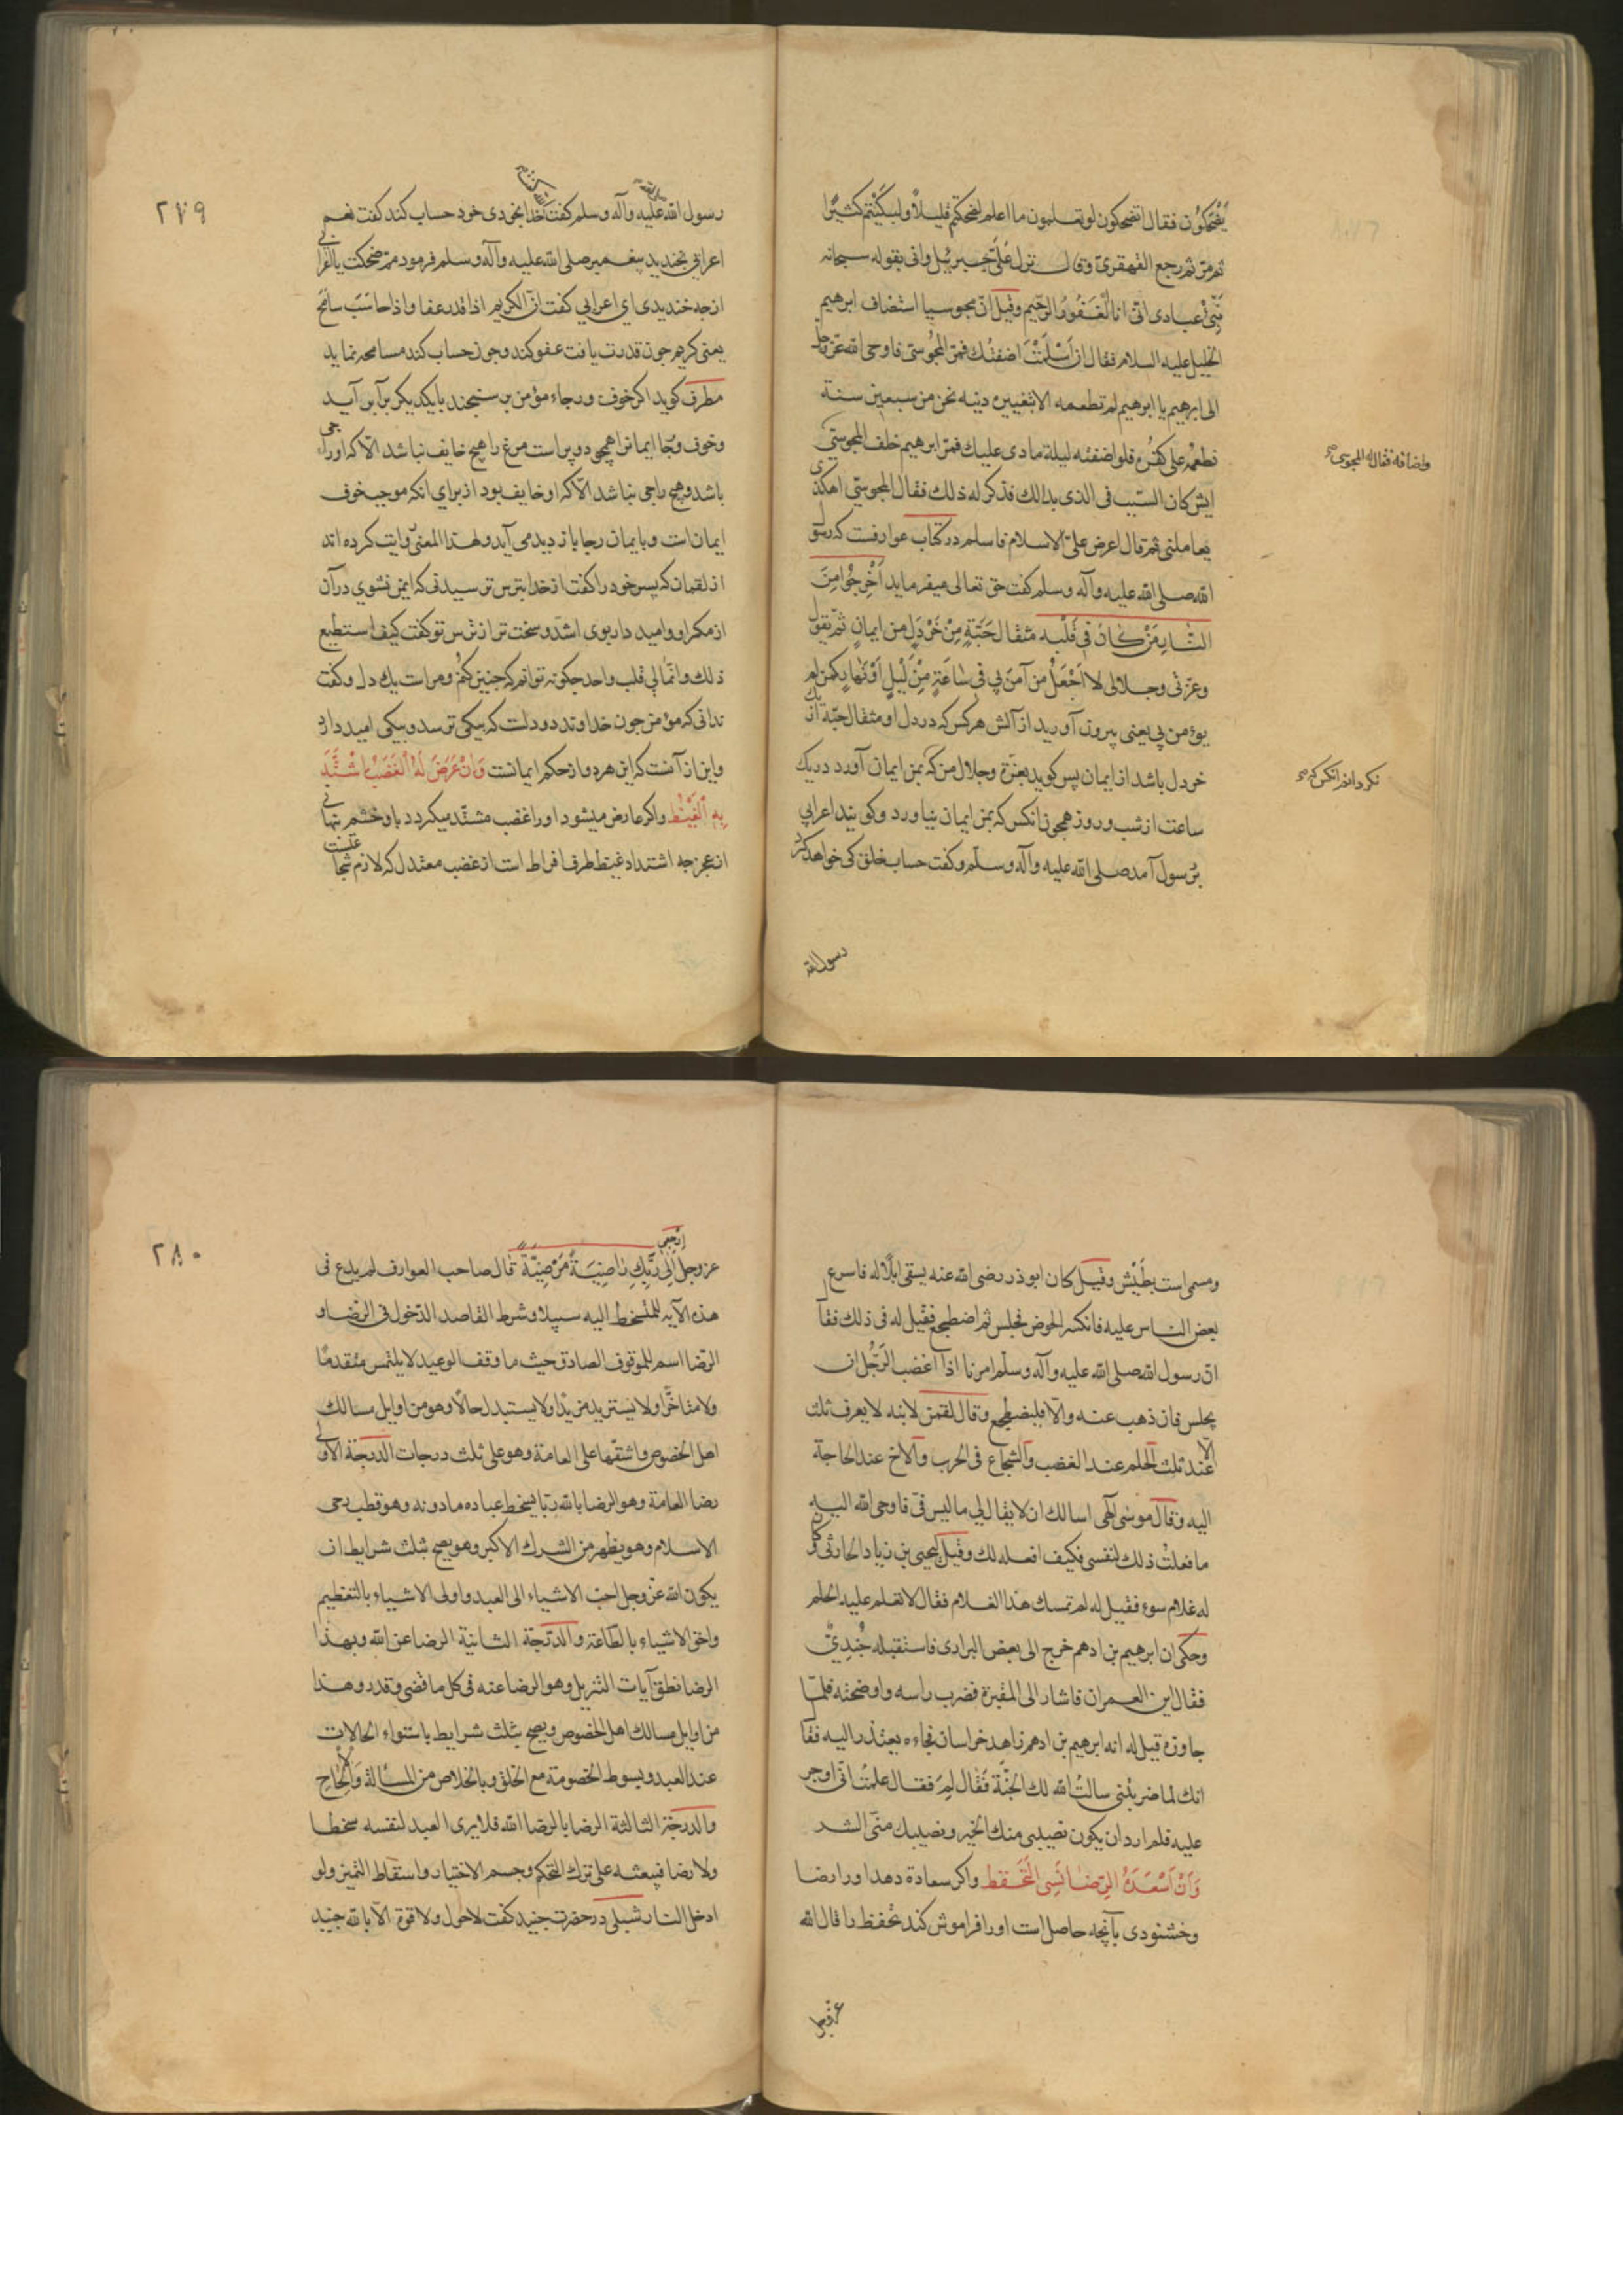 يَضْحَكُون فقال اتضحكون لو تعلمون ما اعلم لضحكتم قليلاً ولبكيتم كثيرًا
ثم مرّ ثم رجع القهقرى وقال نزل عَلَىّ جبرئيل واتى بقوله سبحانه
نَبِّئْ عبادى انّى انا الغَفُورُ الرحيم وقيل انّ مجوسيا استضاف ابرهيم
الخليل عليه السلام فقال ان اَسْلَمْتَ اضفتُك فمرّ المجوسىّ فاوحى الله عزّ وجل
الى ابرهيم يا ابرهيم لم تطعمه الا بتغييره دينه نحن من سبعين سنة
نطعمه على كفرُه فلو اضفته ليلة ماذى عليك فمرّ ابرهيم خلف المجوسىّ
واضافه فقال له المجوسى صح
ايش كان السّبب فى الذى بدا لك فذكر له ذلك فقال المجوسىّ اهكذى
يعاملنى ثم قال اعرض علىّ الاسلام فاسلم در كتاب عوارفست كه رسو
الله صلى الله عليه وآله وسلم كفت حق تعالى ميفرمايد اَخْرِجُوا مِنَ
النّارِ مَنْ كانَ فى قَلْبِه مثقال حَبَّةٍ مِنْ خَرْدَلٍ من ايمانٍ ثم يقول
وعزّتى وجلالى لا اَجْعَلُ من آمن بى فى سٰاعَةٍ مِنْ لَيْلٍ اَوْ نَهٰارٍ كمن لم
يؤمن بى يعنى بيرون آوريد از آتش هركس كه در دل او مثقال حبّه از يك
خردل باشد از ايمان پس كويد بعزّة وجلال من كه بمن ايمان آورد در يك
نكردانم انكس كه صح
ساعت از شب وروز همچو آنكس كه بمن ايمان نياورد وكويند اعرابى
بَرسول آمد صلى الله عليه وآله وسلّم وكفت حساب خلق كى خواهد كرد
رسول الله
٢٧٩
رسول الله عليه وآله وسلم كفت خدا بخودى خود حساب كند كفت نعم
اعرابى بخنديد پيغمبر صلى الله عليه وآله وسلم فرمود ممّ ضحكت يا اعرابى
از چه خنديدى اى اعرابى كفت انّ الكريم اذا قدر عفا واذا حاسَبَ سامَحَ
يعنى كريم چون قدرت يافت عفو كند وچون حساب كند مسامحه نمايد
مطرف كويد اكر خوف ورجاء مؤمن بر سنجند با يكديكر برابر آيد
وخوف ورجا ايمانرا همچو دو پر است مرغ را هيچ خايف نباشد الّا كه او راجى
باشد وهيچ راجى نباشد الّا كه او خايف بود از براى انكه موجب خوف
ايمان است وبايمان رجا باز ديد مى آيد ولهذا المعنى روايت كرده اند
از لقمان كه پسر خود را كفت از خدا بترس ترسيدنى كه ايمن نشوى در آن
از مكر او واميد دار بوى اشدّ وسخت تر از ترس تو كفت كيف استطيع
ذلك وانّما لى قلب واحد چكونه توانم كه چنين كنم ومر است يك دل وكفت
ندانى كه مؤمن چون خداوند دو دلست كه بيكى ترسد وبيكى اميد دارد
واين از آنست كه اين هردو از حكم ايمانست وَانْ عَرَضَ لَهُ الغَضَبُ اشْتَدَّ
بِهِ الْغَيْظُ واكر عارض ميشود او را غضب مشتد ميكردد باو خشم پنهانى
از عجز چه اشتداد غيظ طرف افراط است از غضب معتدل كه لازم شجاعتست
ومسمى است بطَيْش وقيل كان ابوذر رضى الله عنه يسقى ابلًا له فاسرع
بعض النّاس عليه فانكسر الحوض فجلس ثم اضطجع فقيل له فى ذلك فقا
انّ رسول الله صلى الله عليه وآله وسلّم امرنا اذا اغضب الرّجُل ان
يجلس فان ذهب عنه والّا فليضطجع وقال لقمن لابنه لا يعرف ثلث
الّا عند ثلث الحلم عند الغضب والشجاع فى الحرب والاخ عند الحاجة
اليه وقال موسٰى آلهى اسالك ان لا يقال لى ما ليس فىّ فاوحى الله اليه
ما فعلتُ ذلك لنفسى فكيف افعله لك وقيل ليحيى بن زياد الحارثى وكان
له غلام سوء فقيل له لم تمسك هذا الغلام فقال لاتعلم عليه الحلم
وحكى ان ابرهيم بن ادهم خرج الى بعض البرارى فاستقبله جُنْدِىٌّ
فقال اين العمران فاشار الى المقبرة فضرب راسه واوضحته فلمّا
جاوزه قيل له انه ابرهيم بن ادهم زاهد خراسان فجاءه يعتذر اليه فقا
انك لما ضربتنى سالتُ الله لك الجنّة فَقٰال لِمَ فقال علمتُ انى اوجر
عليه فلم ارد ان يكون نصيبى منك الخير ونصيبك منّى الشر
وَاَنْ اَسْعَدَهُ الرِّضٰا نَسِىَ التَّحَفُّظ واكر سعادة دهد او را رضا
وخشنودى بآنچه حاصل است او را فراموش كند تحفظ را قال الله
عزّ وجل
٢٨٠
عز وجل اِرْجِعِى اِلٰى رَبِّكِ رٰاضِيَةً مَرْضِيّةً قال صاحب العوارف لم يدع فى
هذه الآيه للمتسخط اليه سبيلا وشرط القاصد الدّخول فى الرّضا و
الرّضا اسم للموقوف الصادق حيث ما وقف الوعيد لا يلتمس متقدمًا
ولا متاخّرًا ولا يستزيد مزيدًا ولا يستبدل حالًا وهو من اوايل مسالك
اهل الخصوص واشقّها على العامة وهو على ثلث درجات الدّرجة الاولى
رضا العامّة وهو الرضا بالله ربّا يسخط عباده ما دونه وهو قطب رحى
الاسلام وهو يطهر من الشرك الاكبر وهو يصح بثلث شرايط ان
يكون الله عزّ وجل احبّ الاشياء الى العبد واولى الاشياء بالتعظيم
واحق الاشياء بالطّاعة والدّرجة الثانية الرضا عن الله وبهذا
الرضا نطق آيات التنزيل وهو الرضا عنه فى كل ما قضى وقدر وهذا
من اوايل مسالك اهل الخصوص ويصح بثلث شرايط باستواء الحالات
عند العبد وبسوط الخصومة مع الخلق وبالخلاص من المسالة والالحاح
والدرجة الثالثة الرضا بالرضا الله فلا يرى العبد لنفسه سخطا
ولا رضا فيبعثه على ترك التحكم وحسم الاختيار واسقاط التميز ولو
ادخل النار شبلى در حضرت جنيد كفت لا حول ولا قوة الّا بالله جنيد